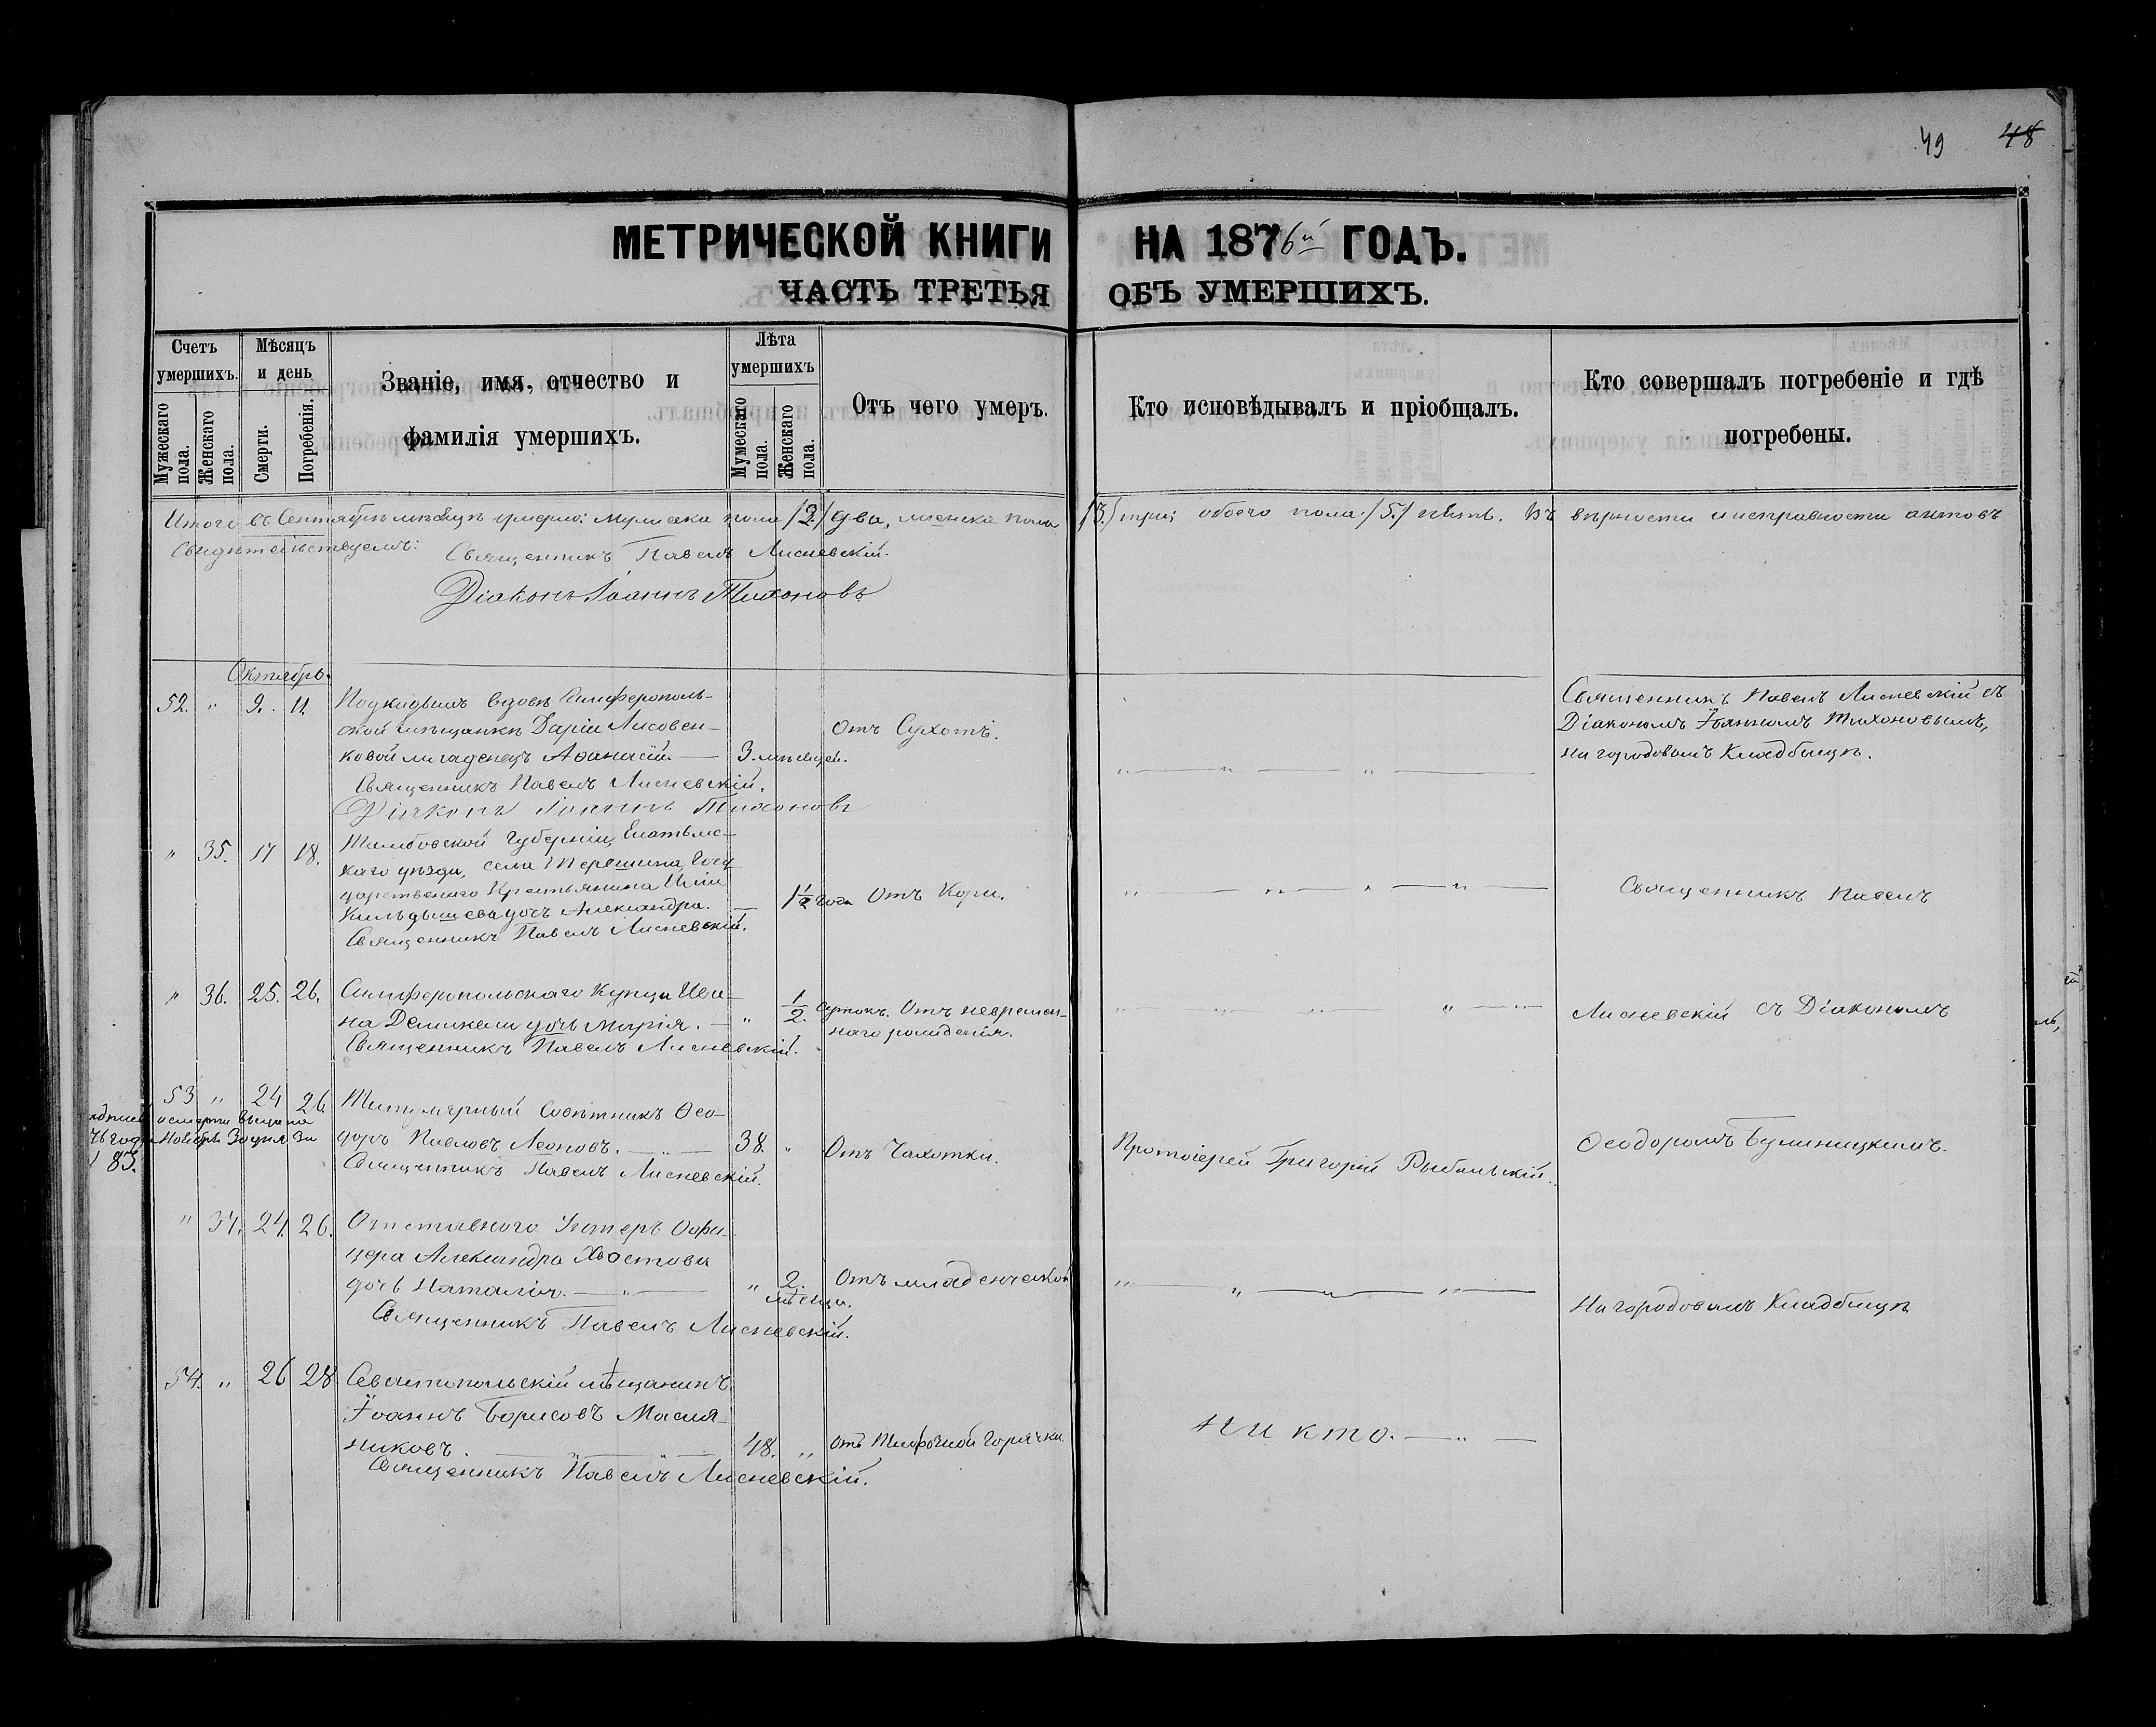 49 48
МЕТРИЧЕСКОЙ КНИГИ НА 1876й ГОДЪ.
ЧАСТЬ ТРЕТЬЯ ОБЪ УМЕРШИХЪ.
Счетъ умершихъ.
Мужескаго пола.
Женскаго пола.
Мѣсяцъ и день
Смерти.
Погребенія.
Званіе, имя, отчество и
фамилія умершихъ.
Лѣта умершихъ
Мужескаго пола.
Женскаго пола.
Отъ чего умеръ.
Кто исповѣдывалъ и пріобщалъ.
Кто совершалъ погребеніе и гдѣ
погребены.
Итого въ Сентябрѣ мѣсяцѣ умерло: мужеска пола /2/ два, женска пола /3/ три; обоего пола /5/ пять. Въ вѣрности и исправности актовъ
Свидѣтельствуемъ: Священникъ Павелъ Лисневскій.
Діаконъ Іоаннъ Тихоновъ
Октябрь.
52. " 9. 11. Подкидышъ вдовѣ Симферополь-
ской мѣщанкѣ Даріи Лисовен-
ковой младенецъ Аѳанасій. — 3. мѣсяцей. Отъ Сухотъ.
Священникъ Павелъ Лисневскій съ
Діакономъ Іоанномъ Тихоновымъ,
на городовомъ Кладбищѣ.
Священникъ Павелъ Лисневскій.
Діаконъ Іоаннъ Тихоновъ
" 35. 17 18. Тамбовской Губерніи, Елатьмс-
каго уѣзда, села Терешина, Госу
дарственаго Крестьянина Иліи
Кильдышева дочь Александра. — 1 1/2 года Отъ Кори.
Священникъ Павелъ
Священникъ Павелъ Лисневскій.
" 36. 25. 26. Симферопольскаго Купца Ива-
на дочь Марія. — " 1/2 сутокъ. Отъ невремен-
наго рожденія.
Лисневскій съ Діакономъ
Священникъ Павелъ Лисневскій.
53 " 24 26 Титулярный Совѣтникъ Ѳео-
доръ Павловъ Леоновъ. — " — 38. " Отъ Чахотки.
Протоіерей Григорій Рыбальскій.
Ѳеодоромъ Буминицкимъ.
Священникъ Павелъ Лисневскій.
о смерти выдана
Ноябр. 30 дня. За
83.
" 37. 24. 26. Отставного Унтеръ Офи-
цера Александра Хвостова
дочь Наталія. — " — " 2. мѣсяца. Отъ младенческой
На городовомъ Кладбищѣ
Священникъ Павелъ Лисневскій.
54. " 26 28 Севастопольскій мѣщанинъ
Іоаннъ Борисовъ Масля-
никовъ. — " — 48. " отъ Тифозной горячки
Ни кто. — " —
Священникъ Павелъ Лисневскій.